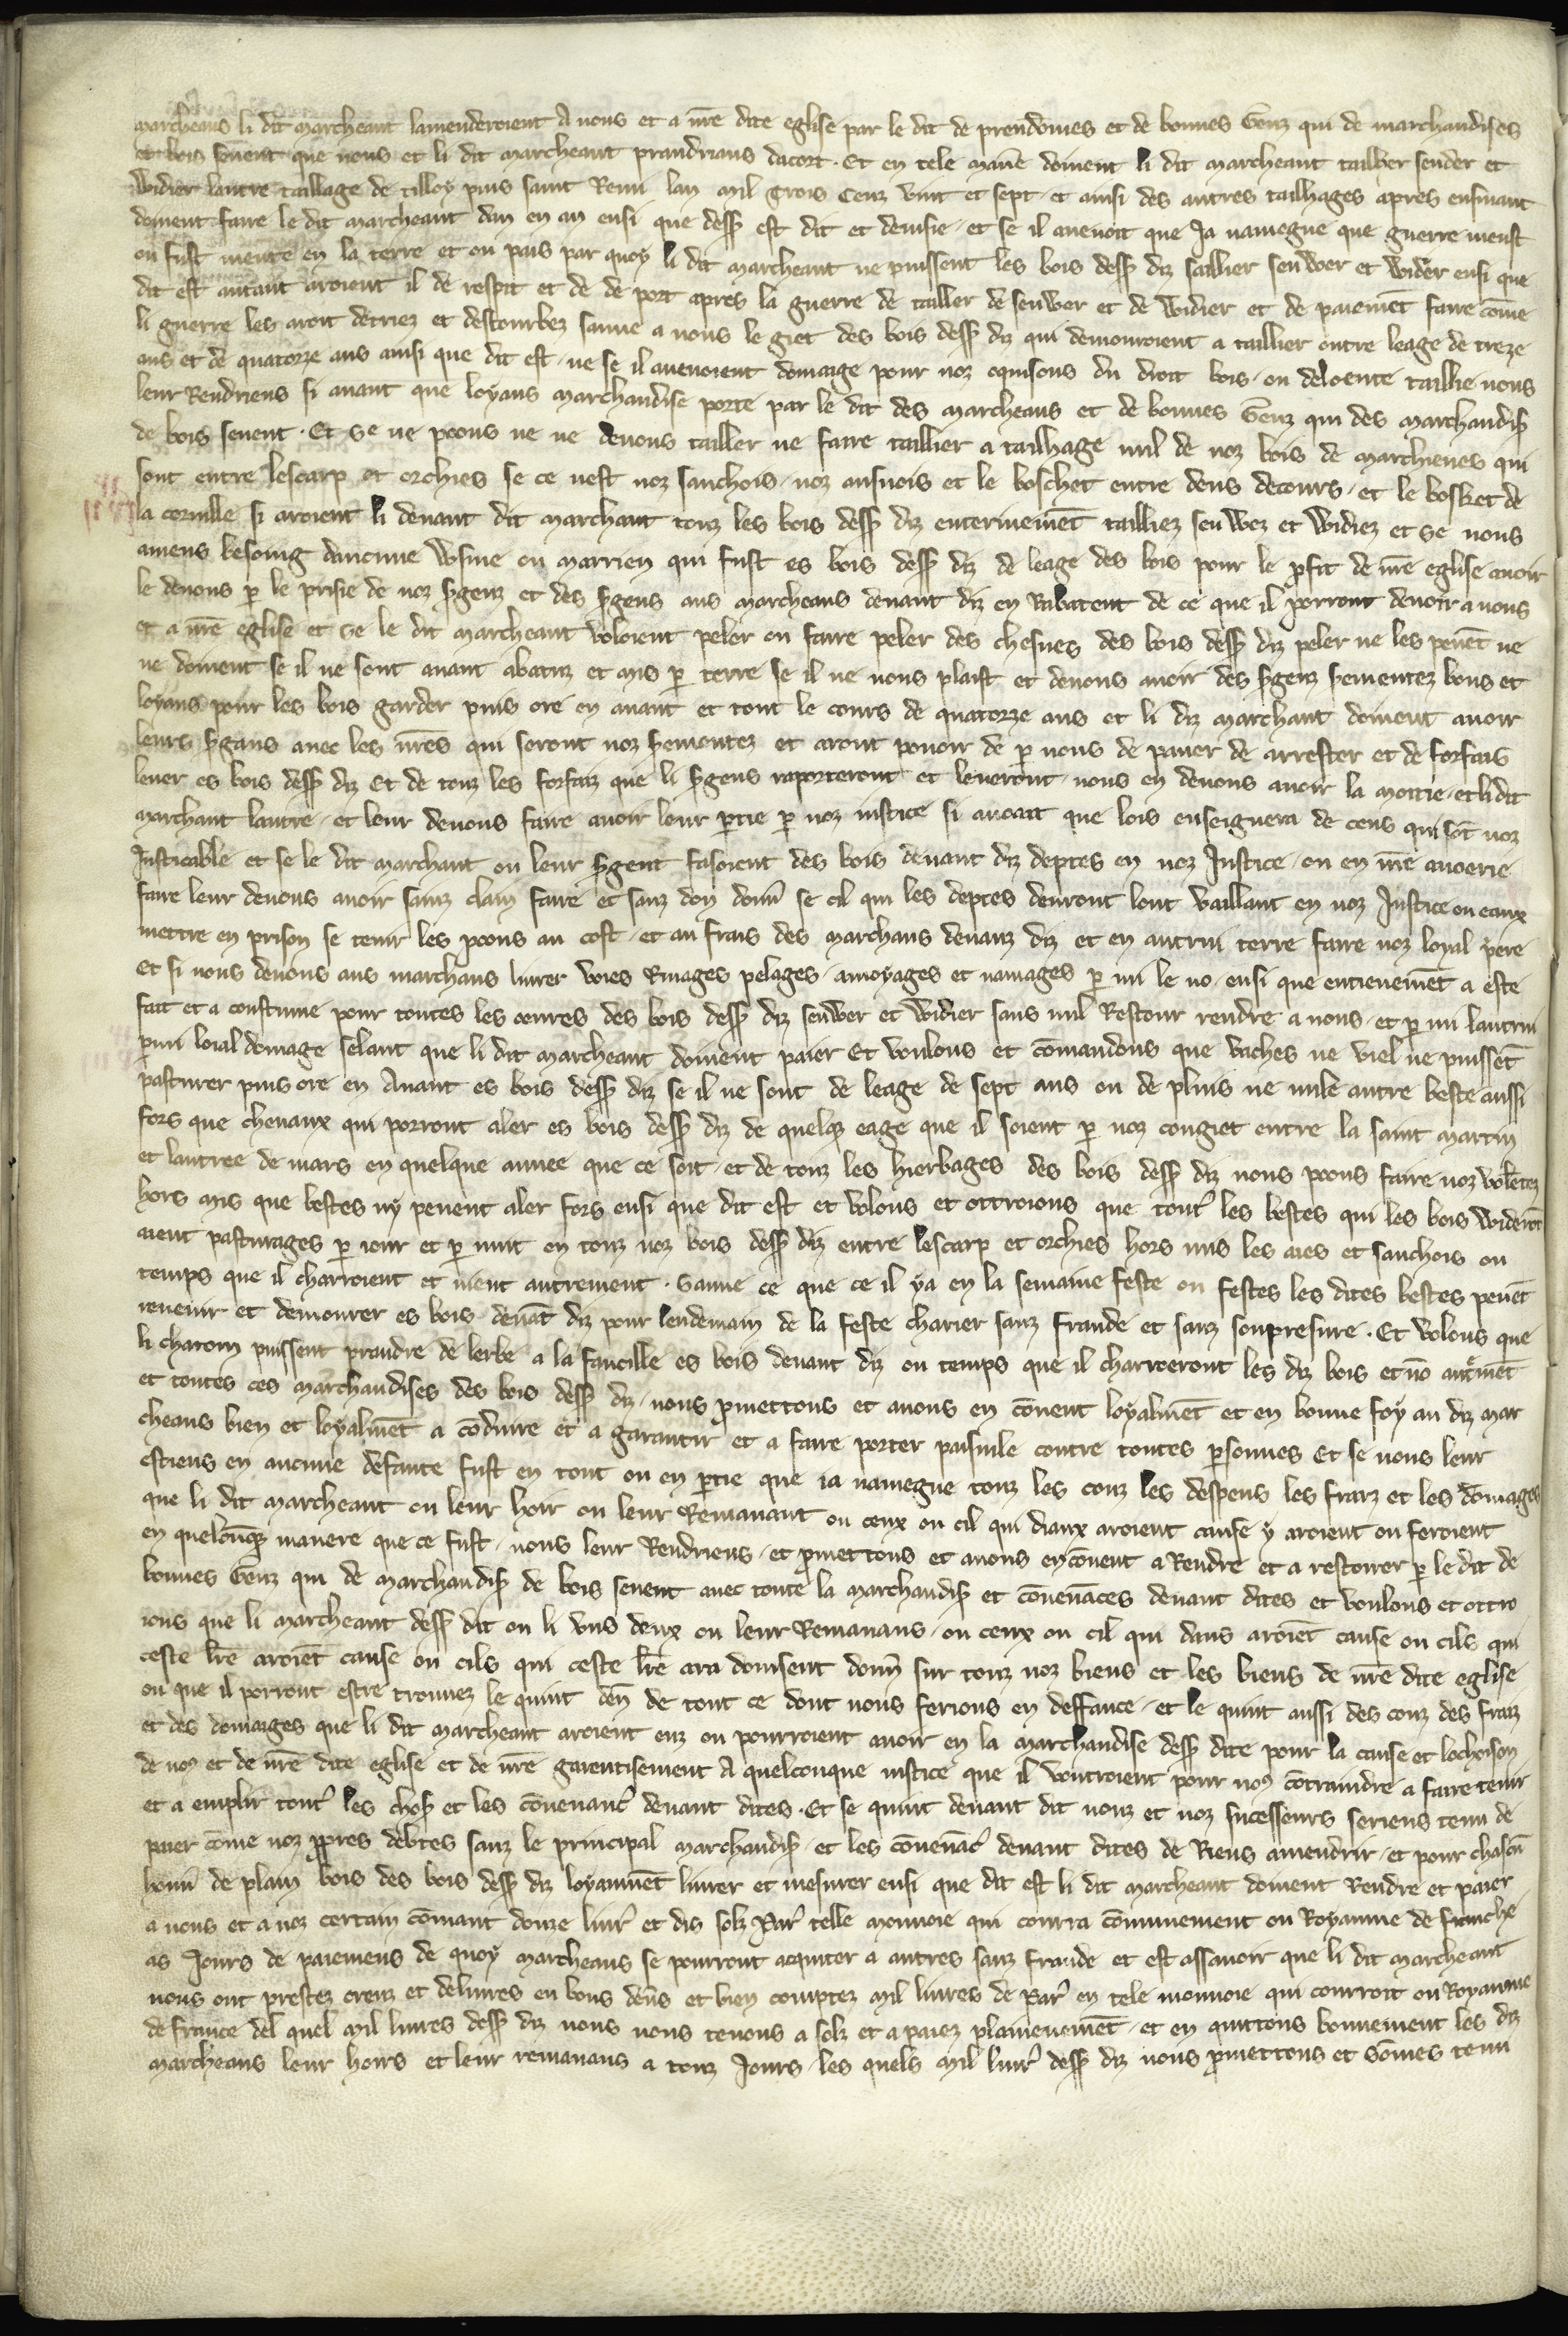 marcheans li dit marcheant lamenderoient A nous et a nr̄e dite eglise par le dit de preudomes et de bonnes Genz qui de marchandises
et bois seuent que nous et li dit marcheant prandrians dacort . Et en tele manē doiuent li dit marcheant taillier sender et
widier lautre taillage de tilloy puis saint Remi lan mil trois Cenz vint et sept et ainsi des autres tailhages apres ensiuant
doiuent faire le dit marcheant dan en an ensi que dess̄ est dit et deuisie et se il auenoit que Ja nauiegne que guerre meust
ou fust meute en la terre et ou pais par quoy li dit marcheant ne puissent les bois dess̄ diz taillier senwer et wider ensi que
dit est autant aroient il de respit et de de port apres la guerre de tailler de senwer et de widier et de paiemēt faire cōme
li guerre les aroit detriez et destourbez sauue a nous le giet des bois dess̄ diz qui demouroient a taillier outre leage de treze
ans et de quatorze ans ainsi que dit est ne se il auenoient domaige pour noz oquisons du droit bois ou deloente taillie nous
leur Rendriens si auant que loyaus marchandise porte par le dit des marcheans et de bonnes Genz qui des marchandis̄
de bois seuent . Et se ne poons ne ne deuons tailler ne faire taillier a tailhage nul de noz bois de marchienes qui
sont entre lescarp et orchies se ce nest noz sauchois noz ausnois et le boschet entre deus decours et le bosket de
la cornille si aroient li deuant dit marchant touz les bois dess̄ diz enterinemēt tailliez senwez et widiez et se nous
auiens besoing daucune wesine ou marrien qui fust es bois dess̄ diz de leage des bois pour le p̄fit de nr̄e eglise auoir
le deuons p̄ le prisie de noz s̄genz et des s̄gens aus marcheans deuant diz en Rabatent de ce que il porront deuoir a nous
et a nr̄e eglise et se le dit marcheant voloient peler ou faire peler des chesnes des bois dess̄ diz peler ne les peuēt ne
ne doiuent se il ne sont auant abatuz et mis p̄ terre se il ne nous plaist et deuons auoir des s̄genz sermentez bons et
loyaus pour les bois garder puis ore en auant et tout le cours de quatorze ans et li diz marchant doiuent auoir
leurs s̄gans auec les nr̄es qui seront noz sermontez et aront pouoir de p̄ nous de paner de arrester et de forfais
leuer es bois dess̄ diz Et de touz les forfaiz que li s̄gens raporteront et leueront nous en deuons auoir la moitie et li dit
marchant lautre et leur deuons faire auoir leur p̄tie p̄ noz iustice si auant que lois enseignera de ceus qui sōt noz
Justicable et se le dit marchant ou leur s̄gent fasoient des bois deuant diz deptes en noz Justice ou en nr̄e auoerie
faire leur deuons auoir sainz claim faire et sanz don doner se cil qui les deptes deuront lont vaillant en noz Justice ou eaux
mettre en prison se tenir les poons au cost et au frais des marchans deuanz diz et en autrui terre faire noz loyal p̄iere
et si nous deuons aus marchans liurer voies Riuages pelages amoyages et nauiages p̄ mi le no ensi que entieuemēt a este
fait et a coustume pour toutes les oeures des bois dess̄ diz senwer et widier sans nul Restour rendre a nous et p̄ mi lautrui
p̄mi loial domage selant que li dit marcheant doiuent paier Et voulons et cōmandons que vaches ne viel ne puissēt
pasturer puis ore en Auant es bois dess̄ diz se il ne sont de leage de sept ans ou de pluis ne nule autre beste aussi
fors que cheuaux qui porront aler es bois dess̄ diz de quelq̄ eage que il soient p̄ noz congiet entre la saint martin
et lantree de mars en quelque annee que ce soit et de touz les hierbages des bois dess̄ diz nous poons faire noz volētez
hors mis que bestes ny peuent aler fors ensi que dit est et volons et ottroions que tout' les bestes qui les bois wideront
aient pasturages p̄ iour et p̄ nuit en touz noz bois dess̄ diz entre lescarp et orchies hors mis les aies et sauchois ou
temps que il charroient et nient autrement . Sauue ce que ce il ya en la semaine feste ou festes les dites bestes peuēt
reuenir et demourer es bois deuāt diz pour lendemain de la feste charier sanz fraude et sanz soupresure . Et volons que
li charom puissent prandre de lerbe a la faucille es bois deuant diz ou temps que il charroeront les diz bois et nō autrmēt
et toutes ces marchandises des bois dess̄ diz nous p̄mettons et auons en cōuent loyalmēt et en bonne foy au diz mar
cheans bien et loyalmēt a cōduire et a garantir et a faire porter paisiule contre toutes p̄sonnes Et se nous leur
estiens en aucune defaute fust en tout ou en p̄tie que ia nauiegne touz les couz les despens les fraiz et les domages
que li dit marcheant ou leur hoir ou leur Remanant ou ceux ou cil qui diaux aroient cause y aroient ou feroient
en quelcōq̄ maniere que ce fust nous leur Rendriens et p̄mettons et auons encōuent a Rendre et a restorer p̄ le dit de
bonnes Genz qui de marchandis̄ de bois seuent auec toute la marchandis̄ et cōuenāces deuant dites et voulons et ottro
ions que li marcheant dess̄ dit ou li vns deux ou leur Remanans ou ceux ou cil qui daus aroiēt cause ou cils qui
ceste lr̄e aroiēt cause ou cils qui ceste lr̄e ara douisent doner sur touz noz biens et les biens de nr̄e dite eglise
ou que il porront estre trouuez le quint den̄ de tout ce dont nous ferions en deffance et le quint aussi des couz des fraiz
et des domaiges que li dit marcheant aroient euz ou pourroient auoir en la marchandise dess̄ dite pour la cause et lochoison
de noz et de nr̄e dite eglise et de nr̄e garentisement A quelconque iustice que il voutroient pour no9 cōtraindre a faire tenir
et a emplir tout' les chos̄ et les cōuenanc' deuant dites . Et se quint deuant dit nouz et noz sucesseurs seriens tenu de
paier cōme noz p̄pres debtes sanz le principal marchandis̄ et les cōuenāc' deuant dites de Riens amendrir et pour chascū
boni' de plain bois des bois dess̄ diz loyaumēt liurer et mesurer ensi que dit est li dit marcheant doiuent Rendre et paier
a nous et a noz certain cōmant douze liur' et dis solz Par' telle monnoie qui courra cōmunement ou Royaume de franche
as Jours de paiemens de quoy marcheans se pourront aquiter a autres sanz fraude et est assauoir que li dit marcheant
nous ont prestez creuz et deliures en bons den̄s et bien comptez mil liures de Par' en tele monnoie qui courroit ou Royaume
de france del quel mil liures dess̄ diz nous nous tenons a solz et a paiez plainenemēt et en quittons bonnement les diz
marcheans leur hoirs et leur remanans a touz Jours les quels mil liur' dess̄ diz nous p̄mettons et sōmes tenu